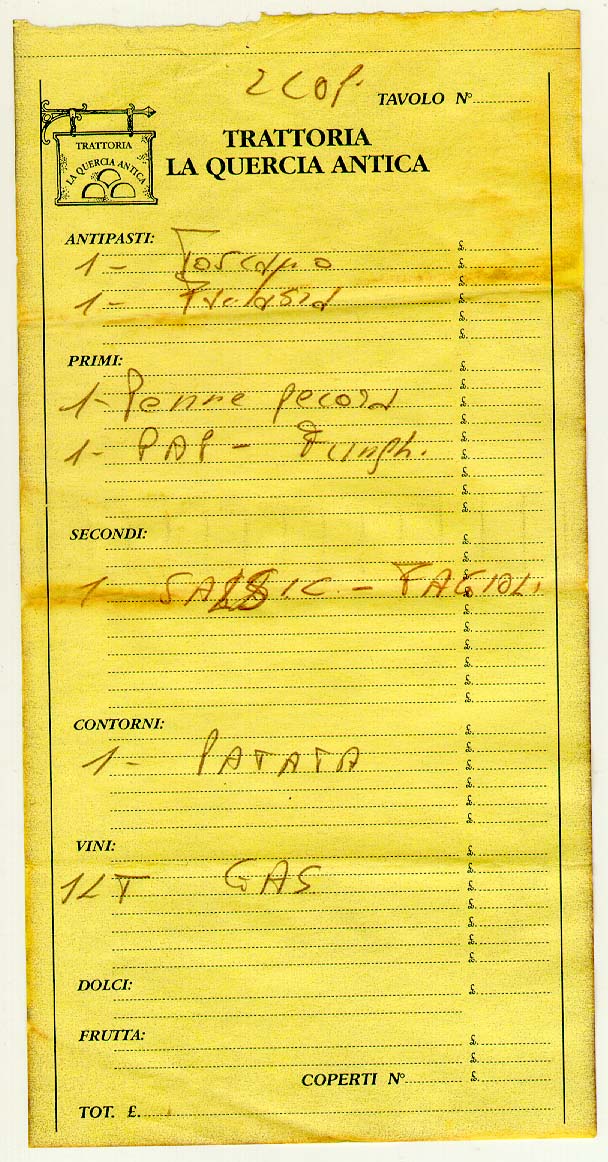 2 COP.
TAVOLO N°
TRATTORIA
LA QUERCIA ANTICA
TRATTORIA
LA QUERCIA ANTICA
ANTIPASTI: £.
1 - Toscano £.
£.
1 - £.
£.
£.
PRIMI: £.
£.
1 - Penne pecora £.
£.
1 - PAP - Funghi. £.
£.
£.
£.
£.
SECONDI: £.
£.
£.
1 SALSIC - FAGIOLI. £.
£.
£.
£.
£.
£.
£.
CONTORNI: £.
£.
1 - PATATA £.
£.
£.
£.
VINI: £.
£.
1 LT GAS £.
£.
£.
£.
£.
DOLCI: £.
FRUTTA: £.
£.
COPERTI N° £.
TOT. £.